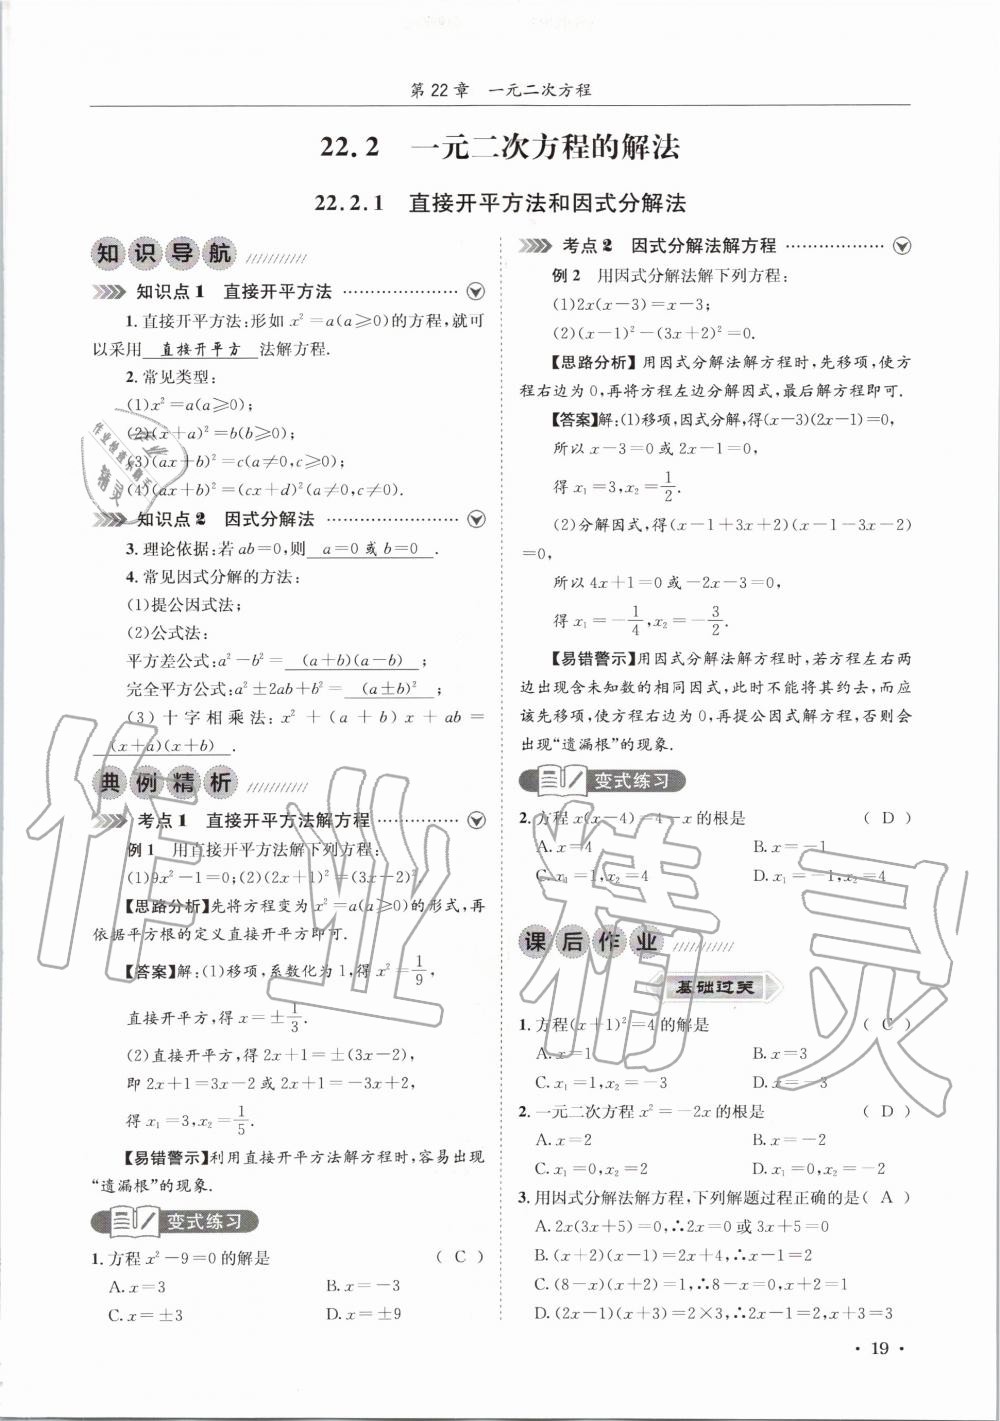 第22章 一元二次方程
22.2 一元二次方程的解法
22.2.1 直接开平方法和因式分解法
知识导航
知识点1 直接开平方法
1.直接开平方法:形如 x²=a(a≥0)的方程,就可
以采用 直接开平方 法解方程.
2.常见类型:
(1)x²=a(a≥0);
(2)(x+a)²=b(b≥0);
(3)(ax+b)²=c(a≠0,c≥0);
(4)(ax+b)²=(cx+d)²(a≠0,c≠0).
知识点2 因式分解法
3.理论依据:若 ab=0,则 a=0 或 b=0 .
4.常见因式分解的方法:
(1)提公因式法;
(2)公式法:
平方差公式:a²-b²= (a+b)(a-b) ;
完全平方公式:a²±2ab+b²= (a±b)² ;
(3)十字相乘法:x²+(a+b)x+ab=
(x+a)(x+b) .
典例精析
考点1 直接开平方法解方程
例1 用直接开平方法解下列方程:
(1)9x²-1=0;(2)(2x+1)²=(3x-2)²
【思路分析】先将方程变为 x²=a(a≥0)的形式,再
依据平方根的定义直接开平方即可.
【答案】解:(1)移项,系数化为1,得 x²=1/9,
直接开平方,得 x=±1/3.
(2)直接开平方,得 2x+1=±(3x-2),
即 2x+1=3x-2 或 2x+1=-3x+2,
得 x₁=3,x₂=1/5.
【易错警示】利用直接开平方法解方程时,容易出现
“遗漏根”的现象.
变式练习
1.方程 x²-9=0 的解是 ( C )
A.x=3 B.x=-3
C.x=±3 D.x=±9
考点2 因式分解法解方程
例2 用因式分解法解下列方程:
(1)2x(x-3)=x-3;
(2)(x-1)²-(3x+2)²=0.
【思路分析】用因式分解法解方程时,先移项,使方
程右边为0,再将方程左边分解因式,最后解方程即可.
【答案】解:(1)移项,因式分解,得(x-3)(2x-1)=0,
所以 x-3=0 或 2x-1=0,
得 x₁=3,x₂=1/2.
(2)分解因式,得(x-1+3x+2)(x-1-3x-2)
=0,
所以 4x+1=0 或-2x-3=0,
得 x₁=-1/4,x₂=-3/2.
【易错警示】用因式分解法解方程时,若方程左右两
边出现含未知数的相同因式,此时不能将其约去,而应
该先移项,使方程右边为0,再提公因式解方程,否则会
出现“遗漏根”的现象.
变式练习
2.方程 x(x-4)=4-x 的根是 ( D )
A.x=4 B.x=-1
C.x₁=1,x₂=4 D.x₁=-1,x₂=4
课后作业
基础过关
1.方程(x+1)²=4 的解是 ( C )
A.x=1 B.x=3
C.x₁=1,x₂=-3 D.x=-3
2.一元二次方程 x²=-2x 的根是 ( D )
A.x=2 B.x=-2
C.x₁=0,x₂=2 D.x₁=0,x₂=-2
3.用因式分解法解方程,下列解题过程正确的是( A )
A.2x(3x+5)=0,∴2x=0 或 3x+5=0
B.(x+2)(x-1)=2x+4,∴x-1=2
C.(8-x)(x+2)=1,∴8-x=0,x+2=1
D.(2x-1)(x+3)=2×3,∴2x-1=2,x+3=3
·19·
作业精灵